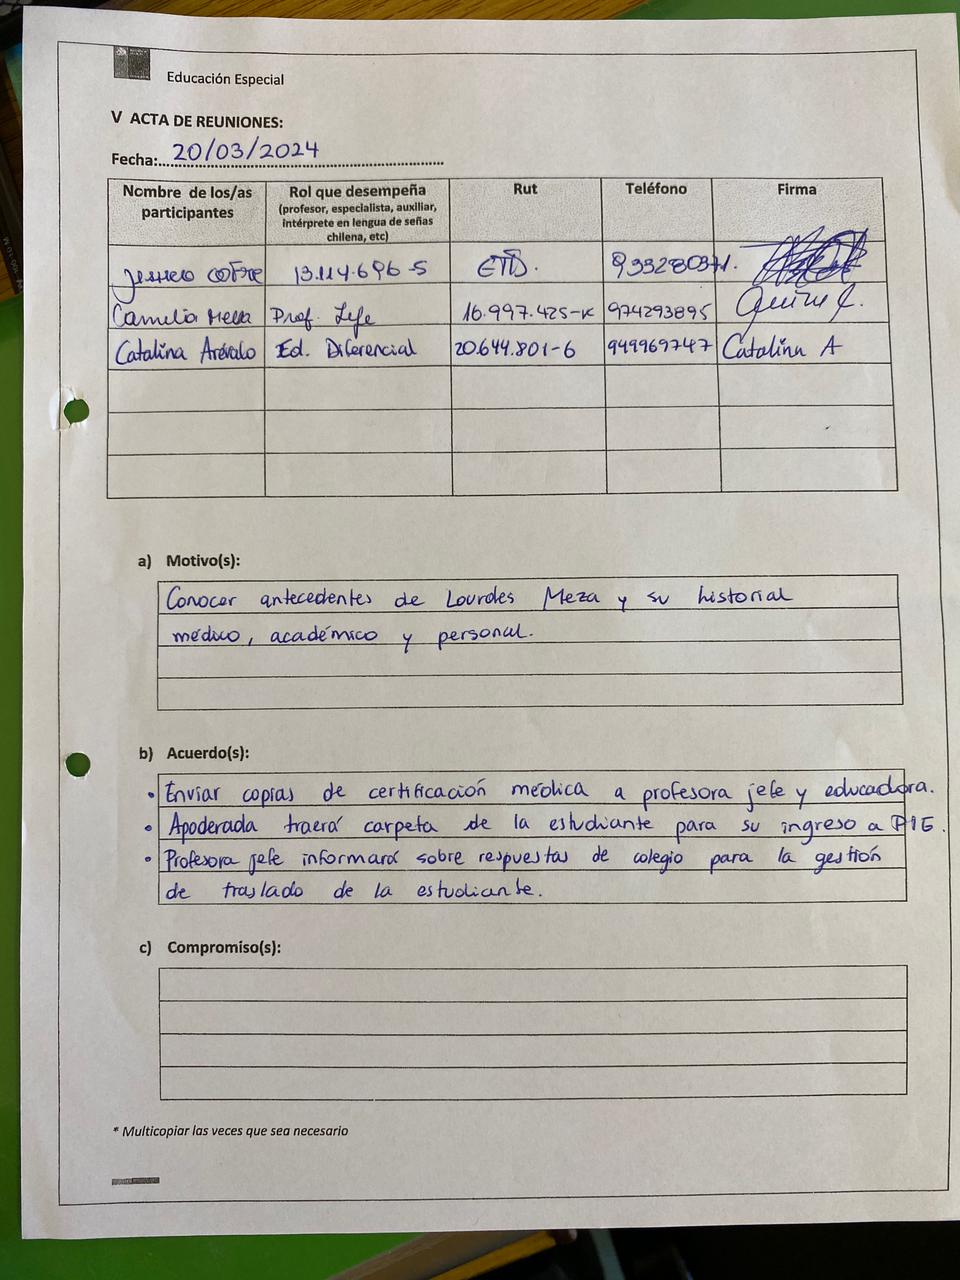 Educación Especial
V ACTA DE REUNIONES:
Fecha: 20/03/2024
Nombre de los/as participantes Rol que desempeña (profesor, especialista, auxiliar, intérprete en lengua de señas chilena, etc) Rut Teléfono Firma
13.114.696-5 933280371.
Camelia Prof. Jefe 16.997.425-K 974293895
Catalina Arévalo Ed. Diferencial 20.644.801-6 949969747 Catalina A
a) Motivo(s):
Conocer antecedentes de Lourdes Meza y su historial
médico, académico y personal.
b) Acuerdo(s):
• Enviar copias de certificación médica a profesora jefe y educadora.
• Apoderada traerá carpeta de la estudiante para su ingreso a PIE.
• Profesora jefe informará sobre respuestas de colegio para la gestión
de traslado de la estudiante.
c) Compromiso(s):
* Multicopiar las veces que sea necesario